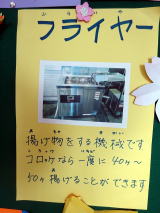 フライヤー
揚げ物をする機械です
コロッケなら一度に40ヶ〜
50ヶ揚げることができます